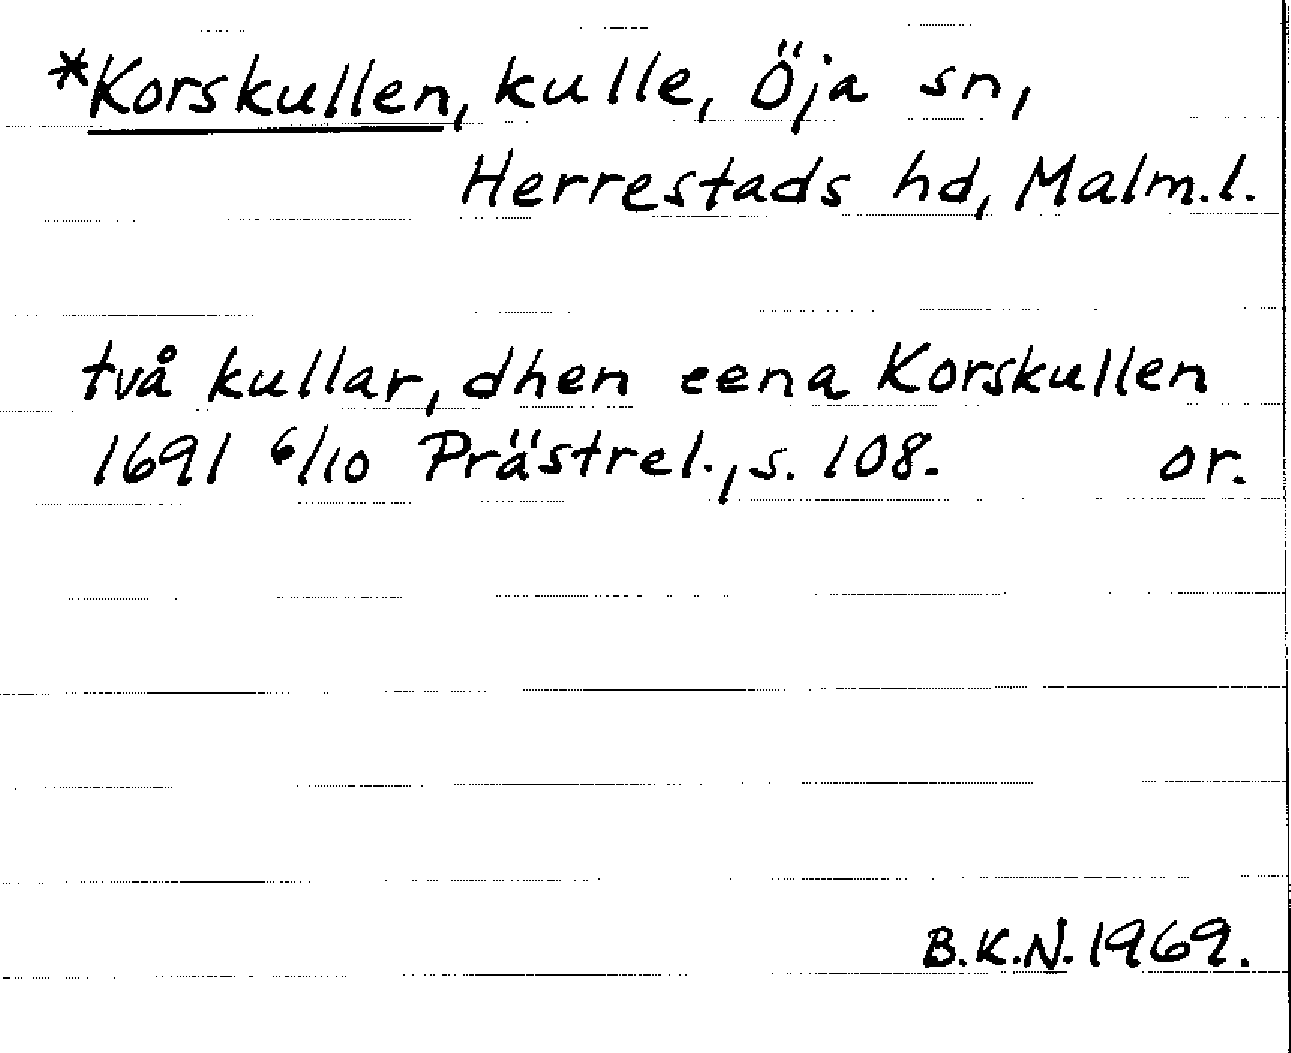 *Korskullen, kulle, Öja sn,
Herrestads hd, Malm.l.
två kullar, dhen eena Korskullen
1691 6/10 Prästrel., s. 108. or.
B.K.N. 1969.